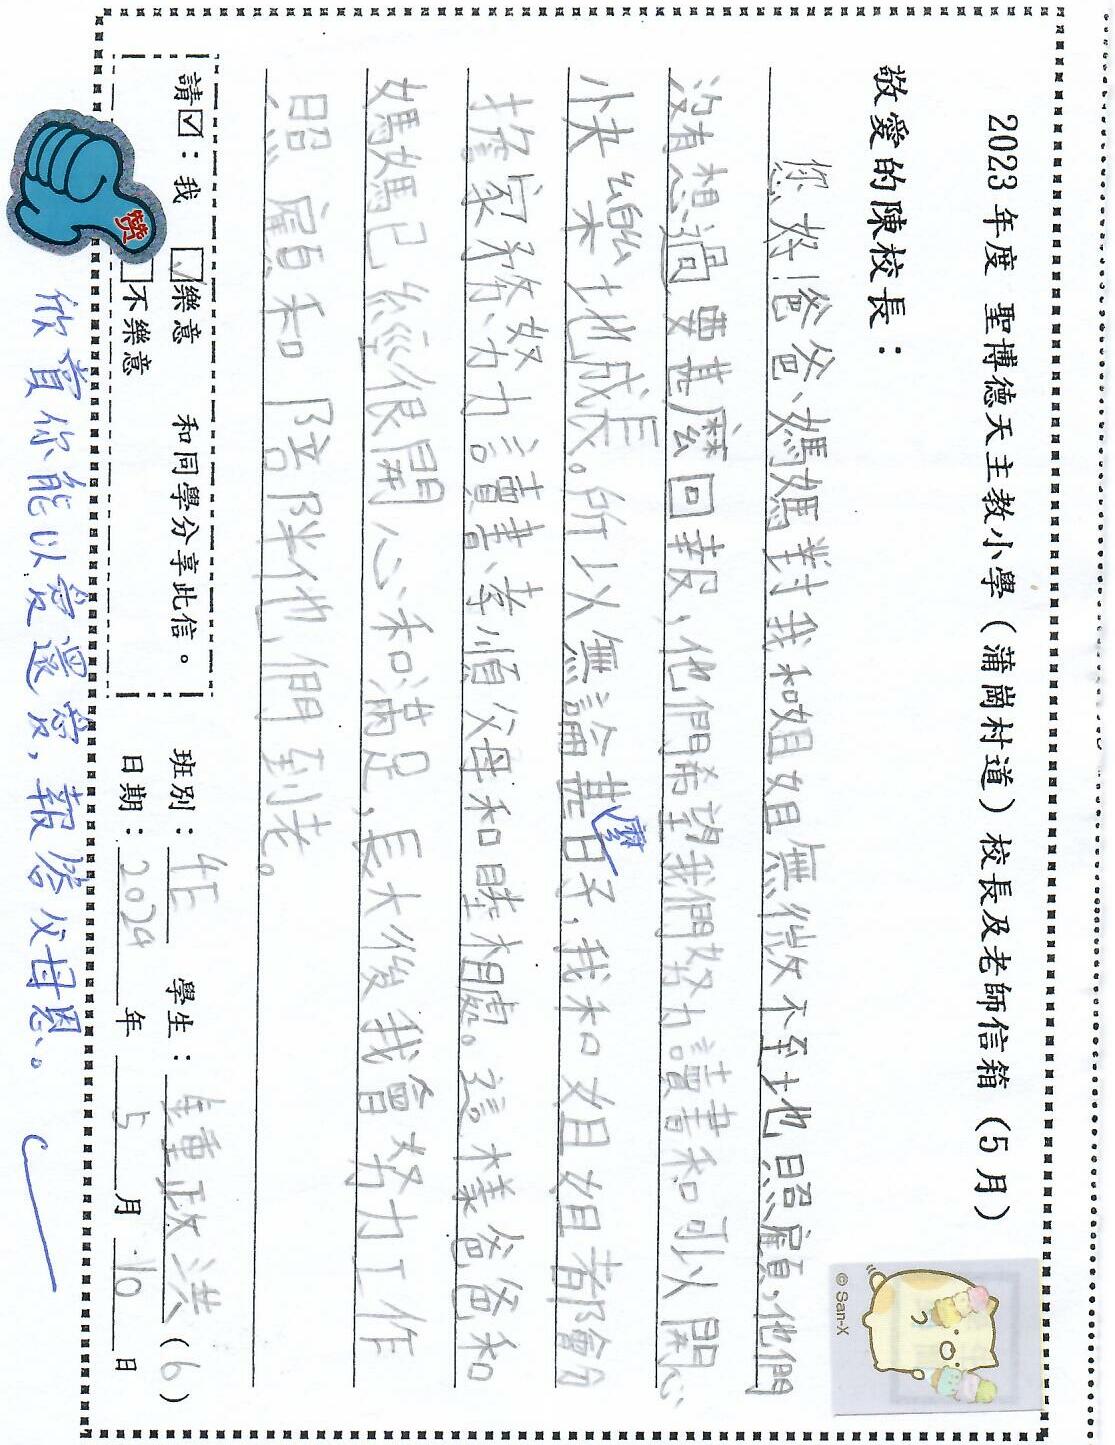 2023年度 聖博德天主教小學(蒲崗村道)校長及老師信箱(5月)
敬愛的陳校長:
您好!爸爸、媽媽對我和姐姐無微不至地照顧,他們
沒有想過要甚麼回報,他們希望我們努力讀書和可以開心
快樂地成長。所以無論甚麼日子,我和姐姐都會分
擔家務、努力讀書、孝順父母和睦相處。這樣爸爸和
媽媽已經很開心和滿足,長大後我會努力工作
照顧和陪伴他們到老。
請☑:我 ☑樂意 和同學分享此信。
☐不樂意
班別: 4E 學生: 鍾政洪 (6)
日期: 2024 年 5 月 10 日
讚
欣賞你能以愛還愛,報答父母恩。
© San-X